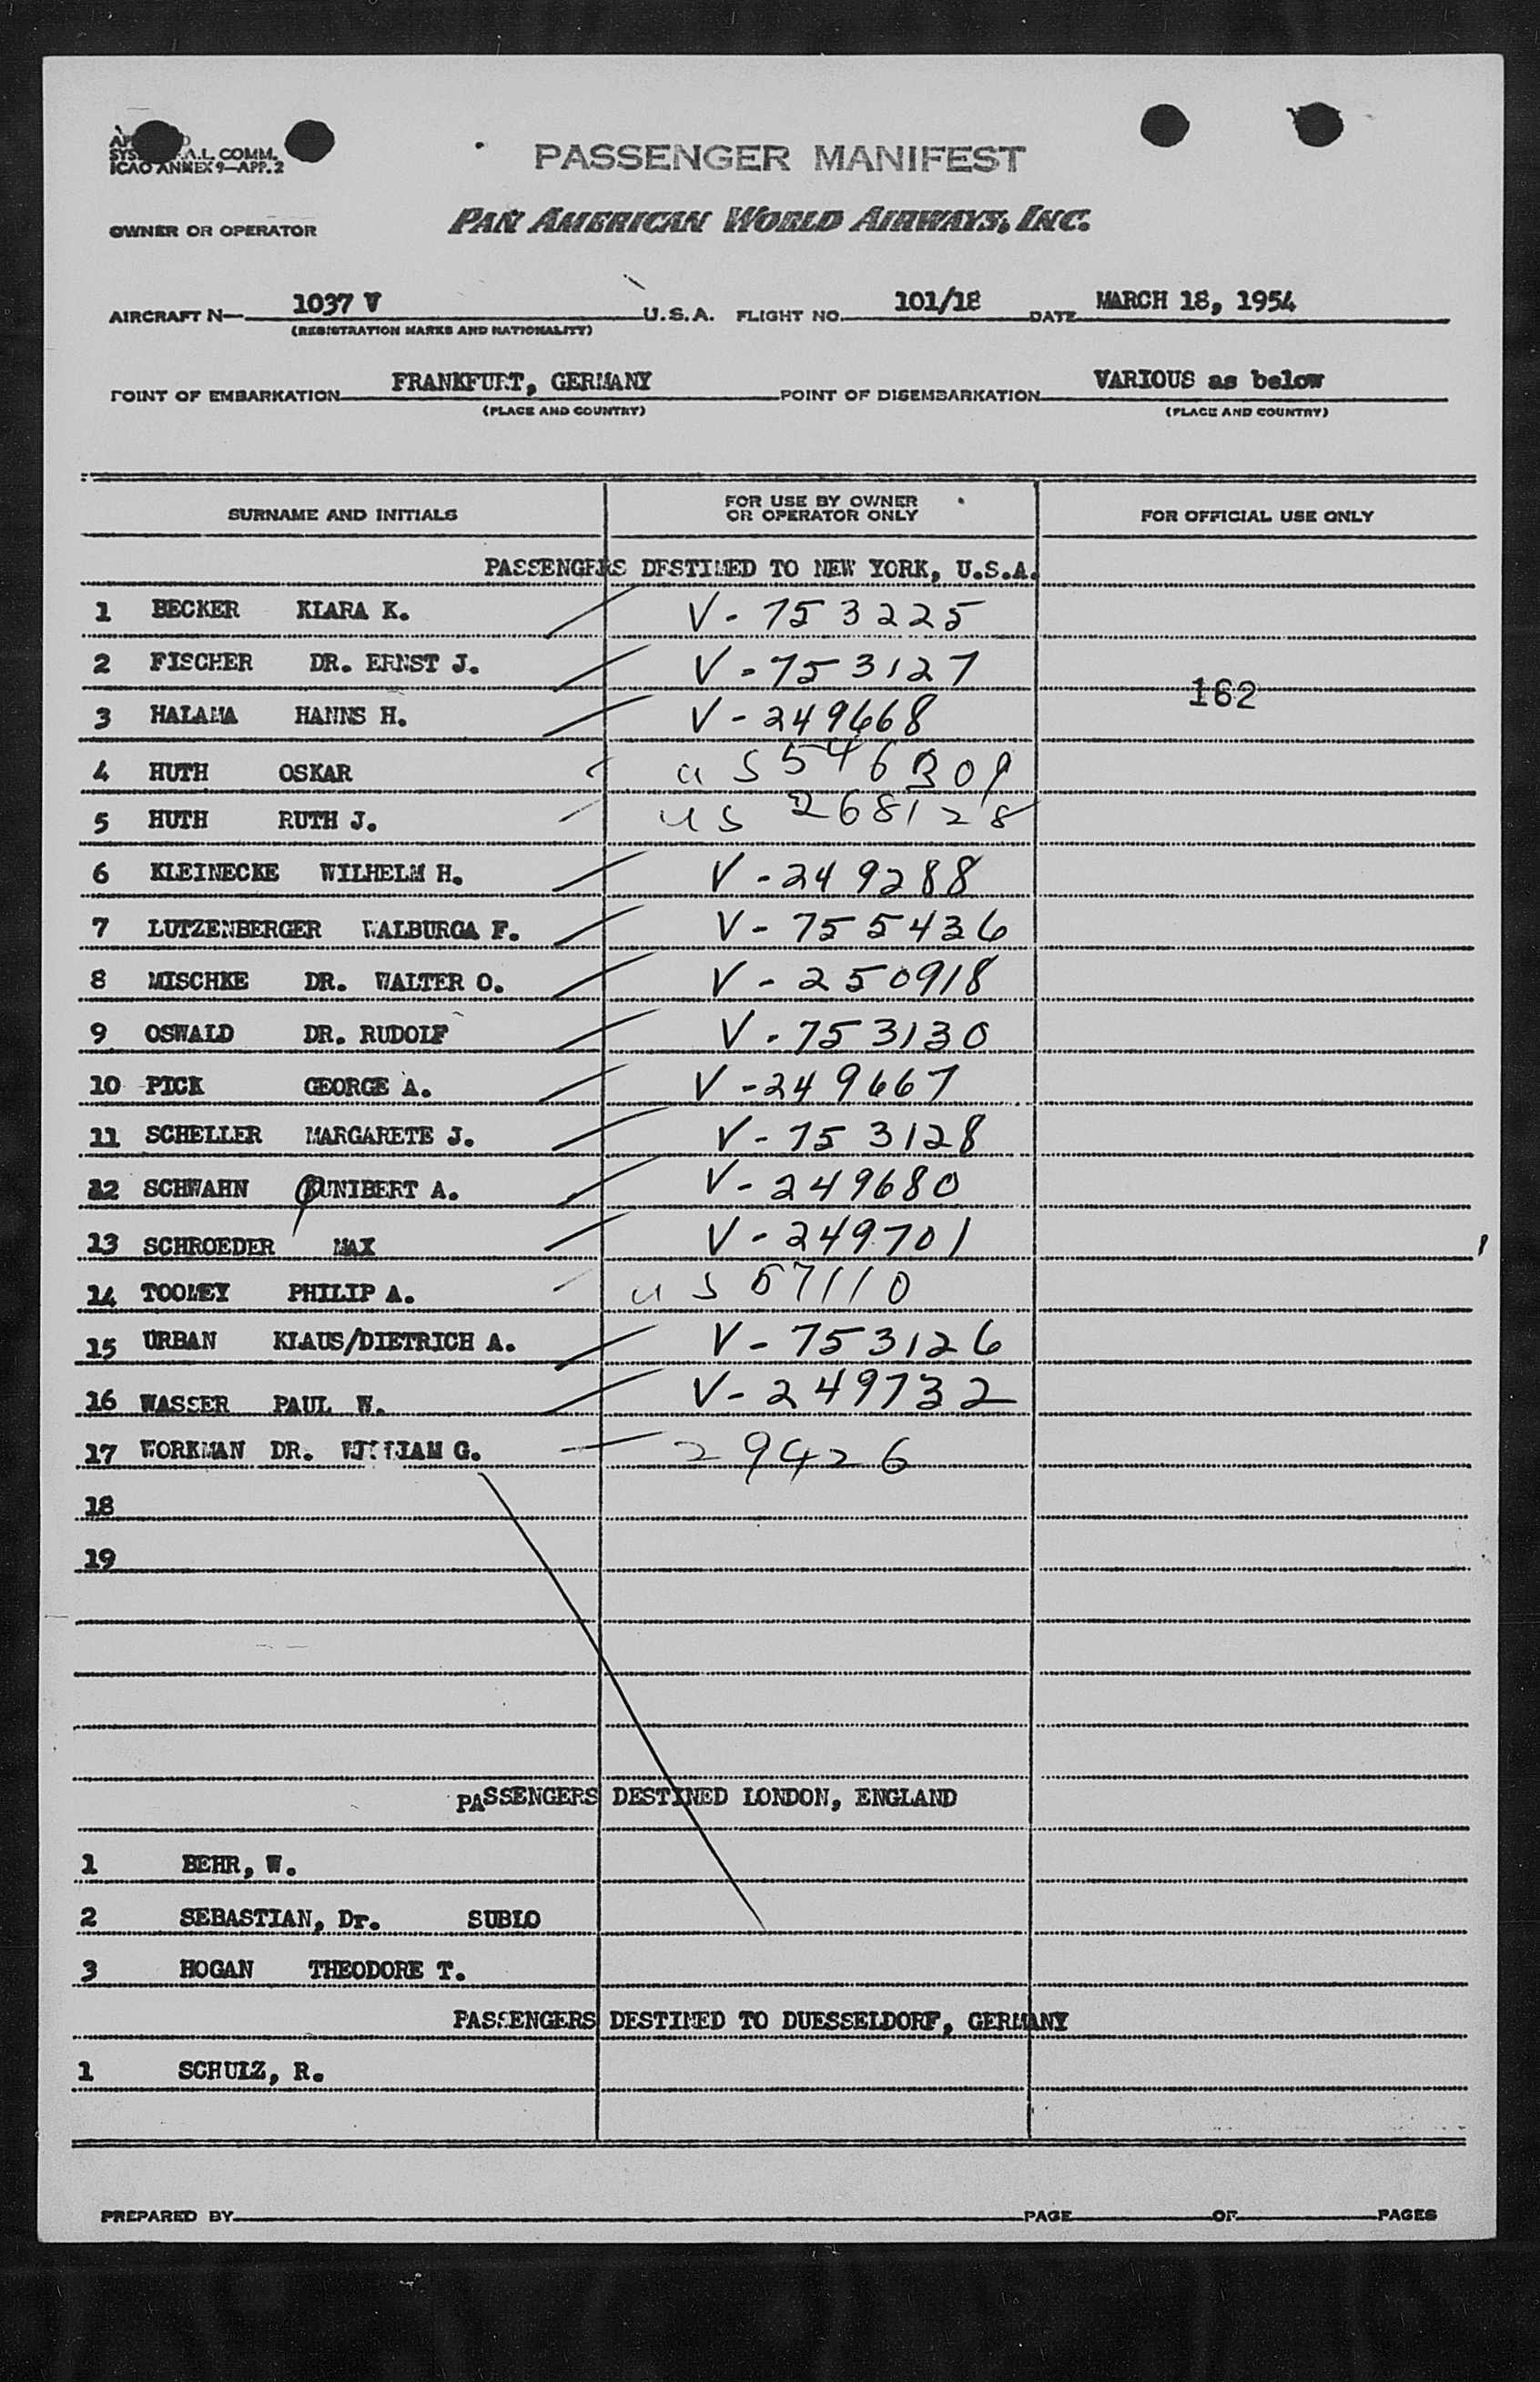 SYS A.L. COMM.
ICAO ANNEX 9—APP. 2
PASSENGER MANIFEST
OWNER OR OPERATOR PAN AMERICAN WORLD AIRWAYS, INC.
AIRCRAFT N— 1037 V U.S.A. FLIGHT NO. 101/18 DATE MARCH 18, 1954
(REGISTRATION MARKS AND NATIONALITY)
POINT OF EMBARKATION FRANKFURT, GERMANY POINT OF DISEMBARKATION VARIOUS as below
(PLACE AND COUNTRY) (PLACE AND COUNTRY)
SURNAME AND INITIALS FOR USE BY OWNER OR OPERATOR ONLY FOR OFFICIAL USE ONLY
PASSENGERS DESTINED TO NEW YORK, U.S.A.
1 BECKER KLARA K. V-753225
2 FISCHER DR. ERNST J. V-753127
162
3 HALAMA HANNS H. V-249668
4 HUTH OSKAR US 546309
5 HUTH RUTH J. US 268128
6 KLEINECKE WILHELM H. V-249288
7 LUTZENBERGER WALBURGA F. V-755436
8 MISCHKE DR. WALTER O. V-250918
9 OSWALD DR. RUDOLF V-753130
10 PICK GEORGE A. V-249667
11 SCHELLER MARGARETE J. V-753128
12 SCHWAHN KUNIBERT A. V-249680
13 SCHROEDER MAX V-249701
14 TOOMEY PHILIP A. US 57110
15 URBAN KLAUS/DIETRICH A. V-753126
16 WASSER PAUL W. V-249732
17 WORKMAN DR. WILLIAM G. 29426
18
19
PASSENGERS DESTINED LONDON, ENGLAND
1 BEHR, W.
2 SEBASTIAN, Dr. SUBLO
3 HOGAN THEODORE T.
PASSENGERS DESTINED TO DUESSELDORF, GERMANY
1 SCHULZ, R.
PREPARED BY PAGE OF PAGES